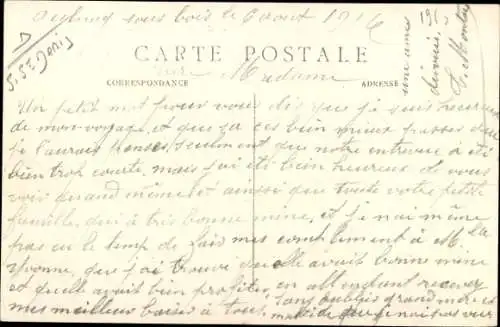 Aulnay sous bois le 6 aout 1916
CARTE POSTALE
CORRESPONDANCE
ADRESSE
Chère Madame
Un petit mot pour vous dir que je suis heureuse
de mon voyage et que ça ces bien mieux passer que
je l'aurais penser, seulment que notre entrevue à été
bien trop courte, mais j'ai été bien heureux de vous
voir quand même et aussi que toute votre petite
famille, qui à très bonne mine, et je n'ai même
pas eu le temp de fair mes complement à M. la
Yvonne, que j'ai trouvé qu'elle avait bonne mine
et qu'elle avait bien profiter, en attendant recevez
mes meilleur baiser à tous, sans oublier grand mère et
que je n'ai pas vue
St Denis
une amie